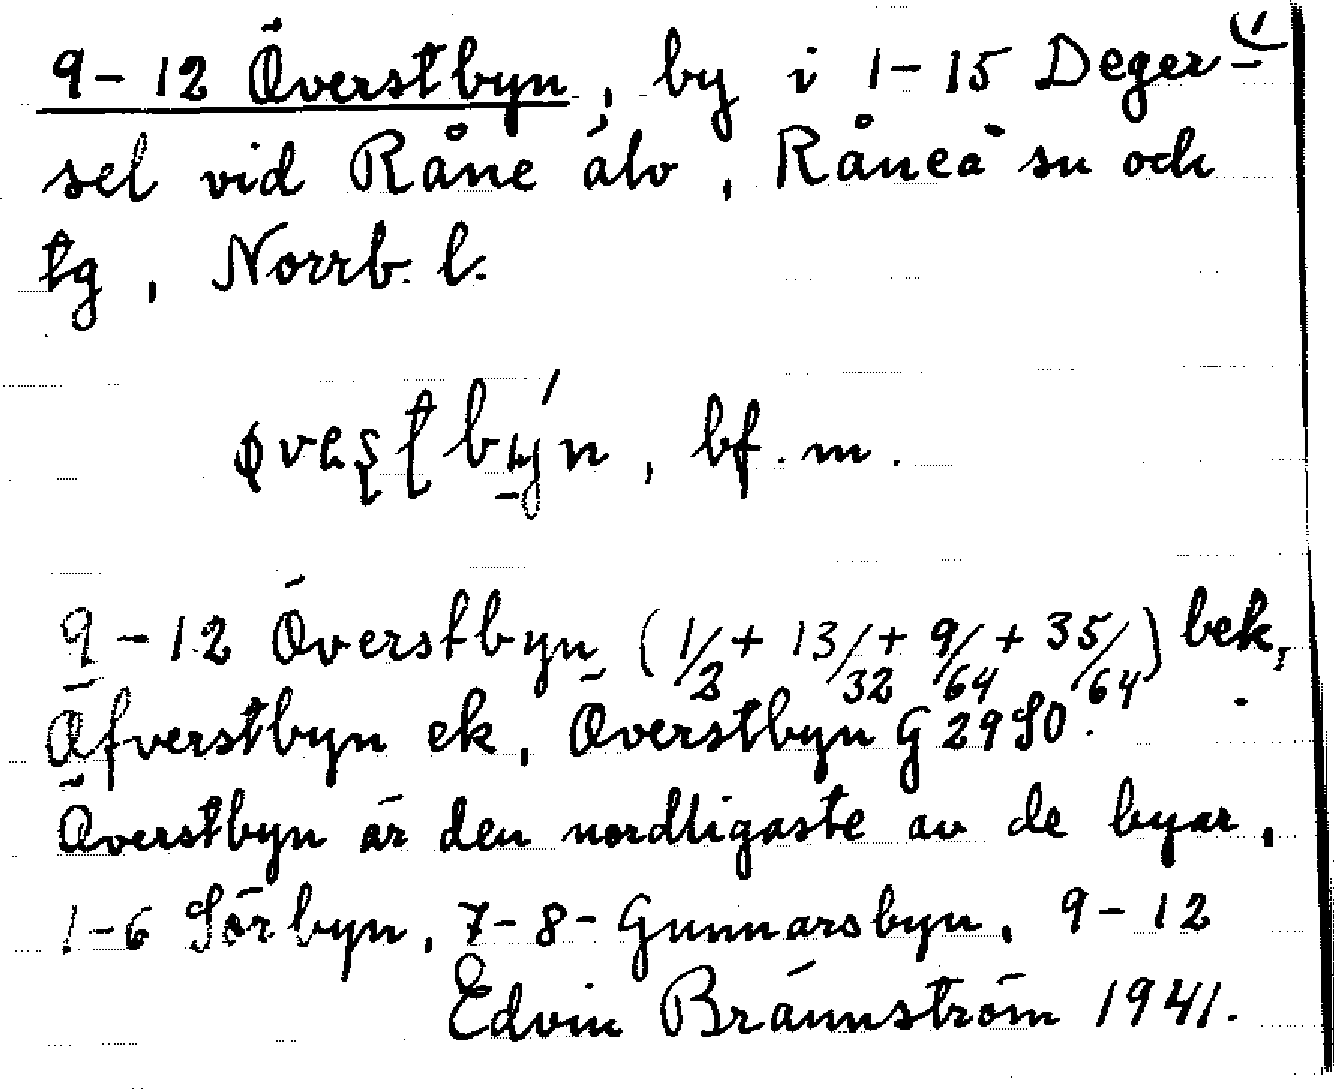 9-12 Överstbyn, by i 1-15 Deger-
sel vid Råne älv, Råneå sn och
tg, Norrb. l.
bf. m.
9-12 Överstbyn (1/2 + 13/32 + 9/64 + 35/64) bek,
Öfverstbyn ek, Överstbyn G 2950.
Överstbyn är den nordligaste av de byar,
1-6 Sörbyn, 7-8- Gunnarsbyn, 9-12
Edvin Brännström 1941.